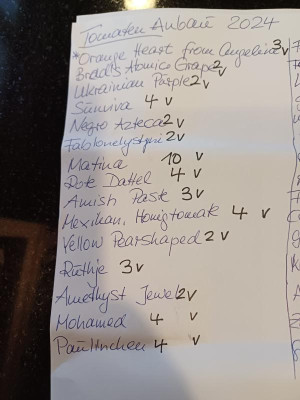 Tomaten Anbau 2024
*Orange Heart from Angelina 3 v
Brad's Atomic Grape 2 v
Ukrainian Purple 2 v
Sunviva 4 v
Negro Azteca 2 v
2 v
Matina 10 v
Rote Dattel 4 v
Amish Paste 3 v
Mexikan. Honigtomate 4 v
Yellow Pearshaped 2 v
Ruthje 3 v
Amethyst Jewel 2 v
Mohamed 4 v
Paulinchen 4 v